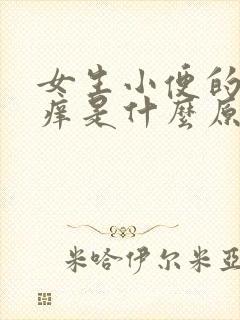 女生小便的
痒是什麼原
米哈伊尔米亞